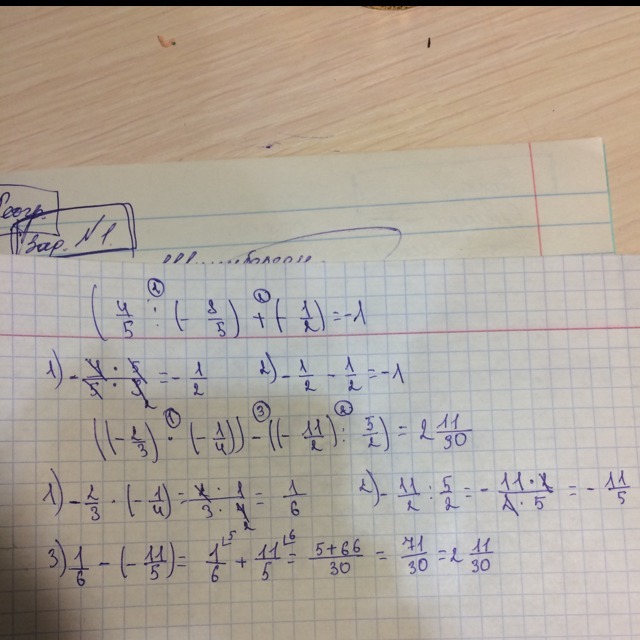 Вар. №1.
( 4/5 : (- 8/5) + (- 1/2) = -1
1) - 4·5/5·8 = - 1/2 2) - 1/2 - 1/2 = -1
((- 2/3) · (- 1/4)) - ((- 11/2) : 5/2) = 2 11/30
1) - 2/3 · (- 1/4) = 2·1/3·4 = 1/6 2) - 11/2 : 5/2 = - 11·2/2·5 = - 11/5
3) 1/6 - (- 11/5) = 1/6 + 11/5 = 5+66/30 = 71/30 = 2 11/30